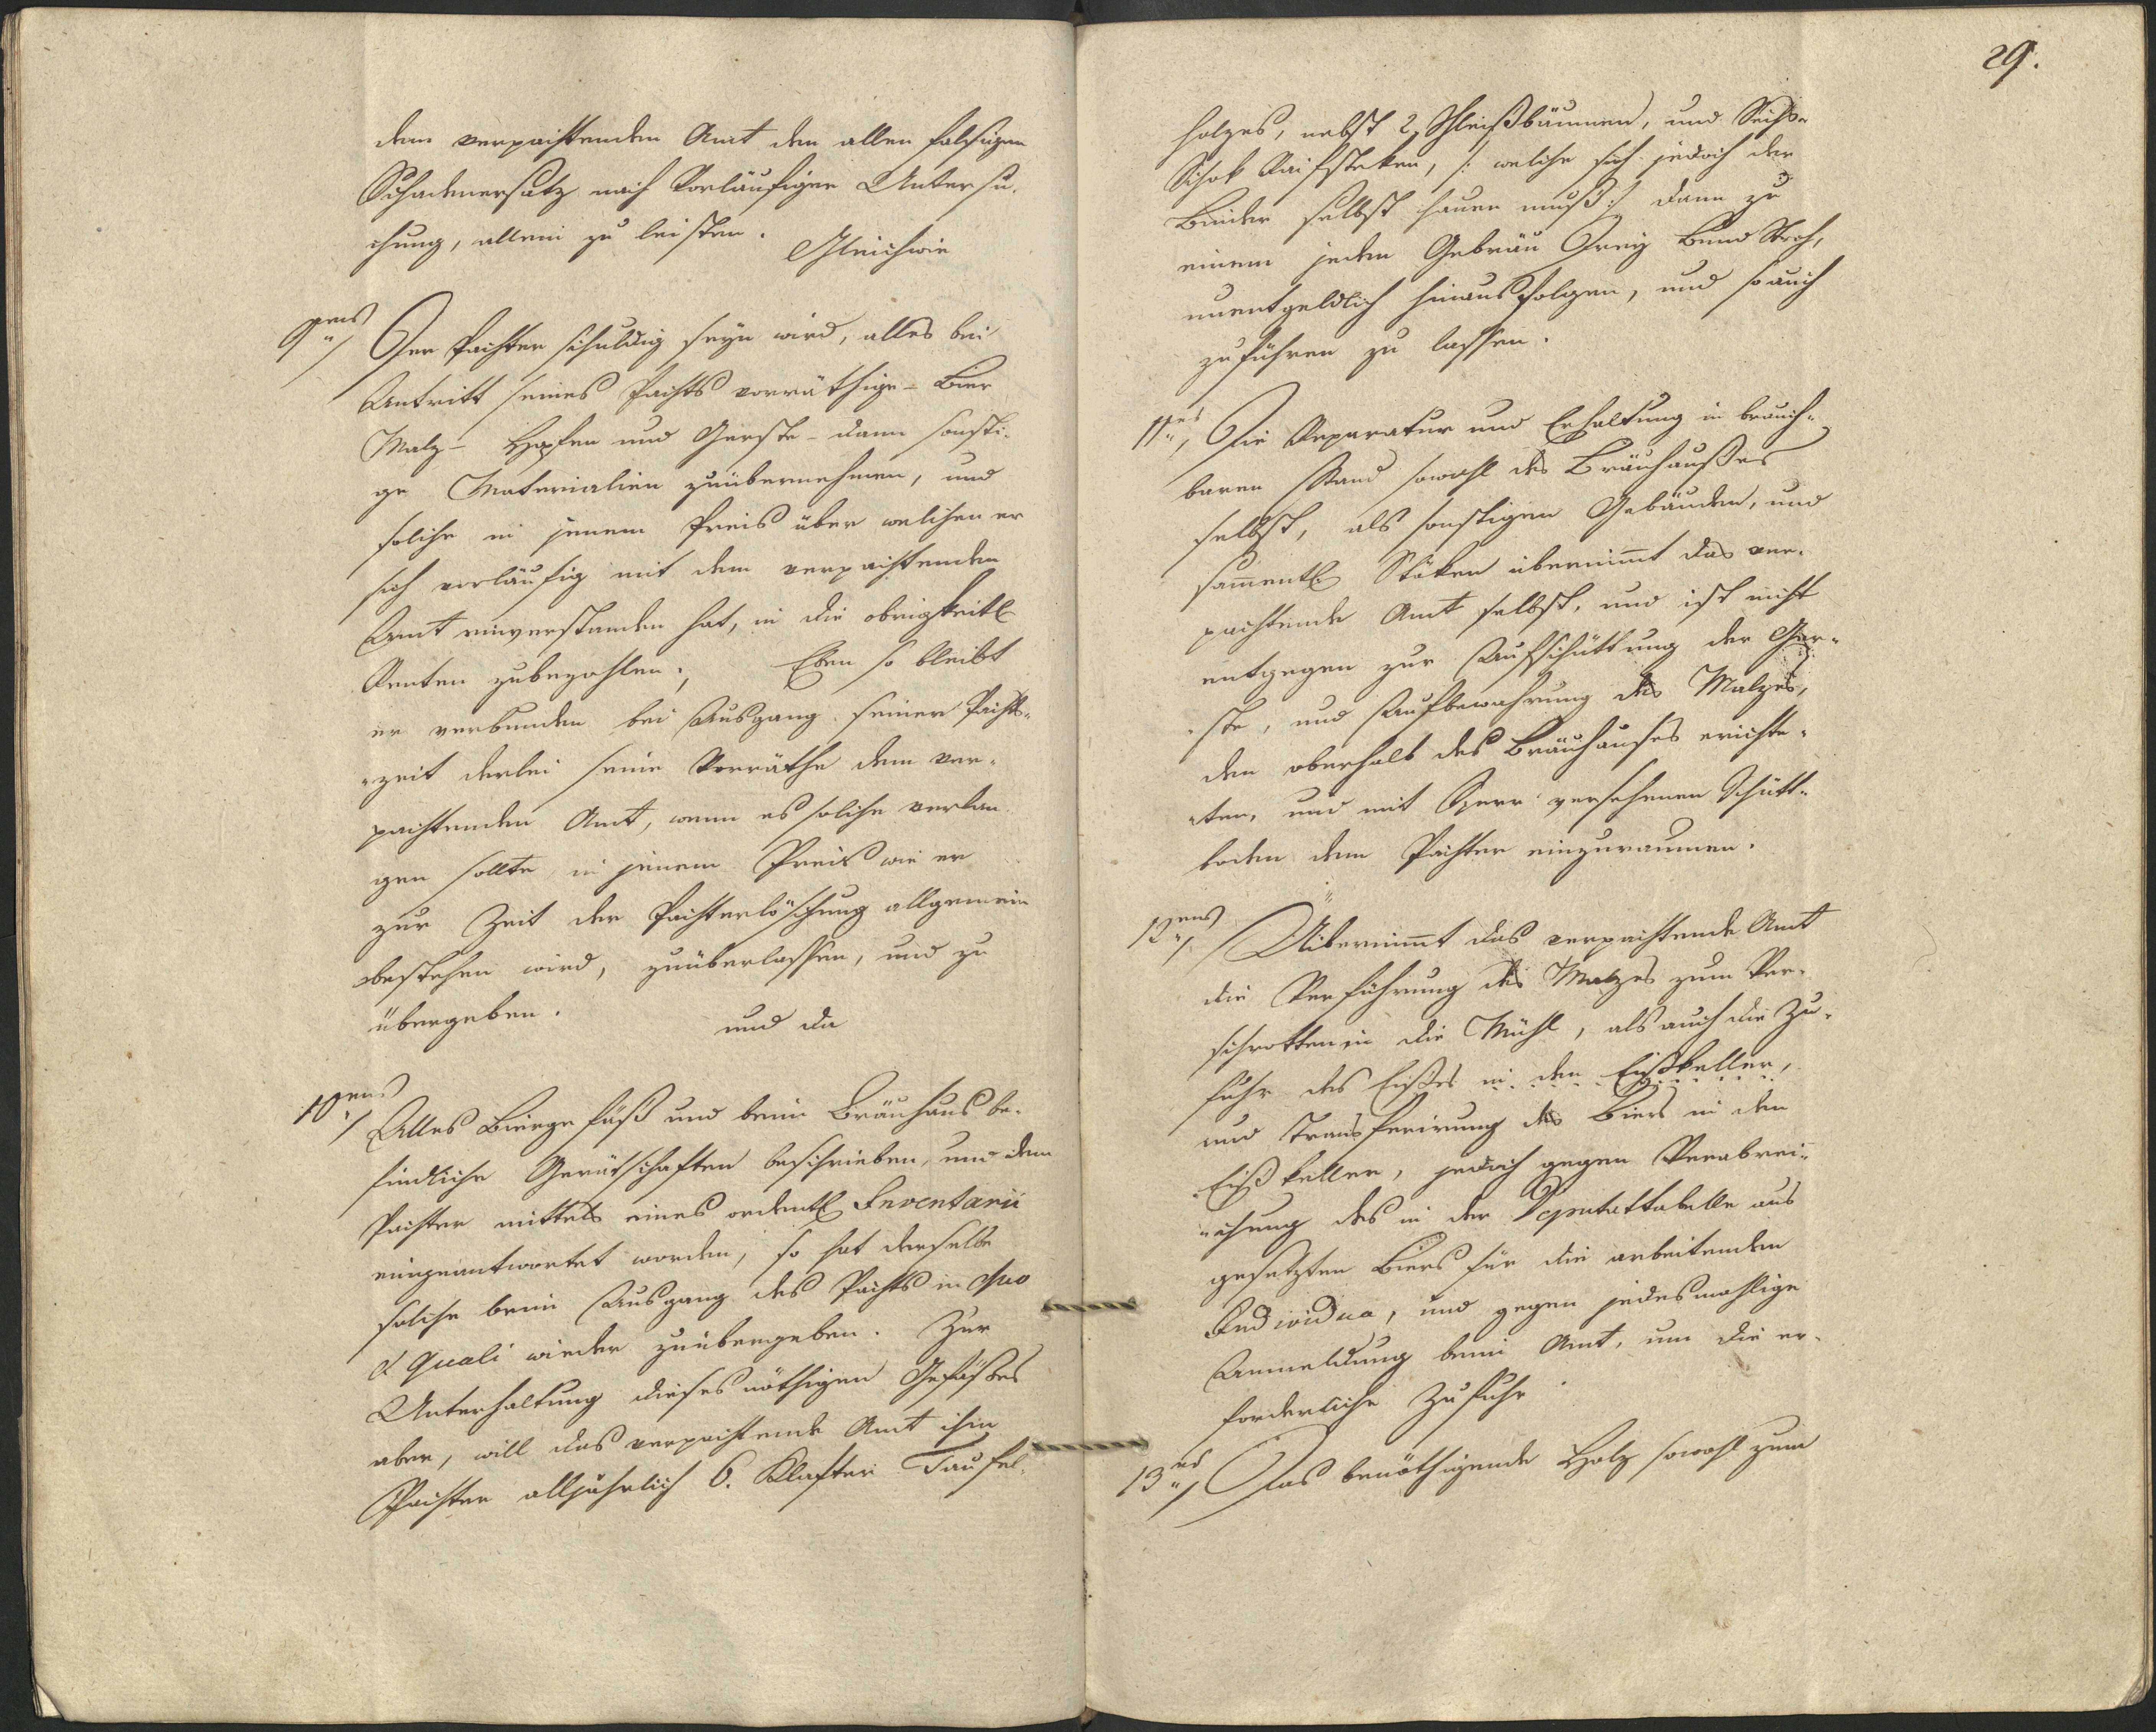 dem verpachtenden Amt den allen falsigen
Schadenersatz nach Vorläufiger Untersu-
chung, allein zu leisten.
Gleichwie
9tens/ Der Pachter schuldig seyn wird, alles bei
Antritt seines Pachts vorräthige - Bier
Malz - Hopfen und Gerste - dann sonsti-
ge Materialien zuübernehmen, und
solche in jenem Preis über welchen er
sich vorläufig mit dem verpachtenden
Amt einverstanden hat, in die obrigkeitl.
Renten zubezahlen; Eben so bleibt
er verbunden bei Ausgang seiner Pacht-
-zeit derlei seine Vorräthe dem ver-
pachtenden Amt, wenn es solche verlan-
gen sollte, in jenem Preis wie er
zur Zeit der Pachterlöschung allgemein
bestehen wird, zuüberlassen, und zu
übergeben.
und da
10tens/ Alles Biergefäß und beim Bräuhaus be-
findliche Geräthschaften beschrieben, und dem
Pachter mittels eines ordentl. Inventarii
eingeantwortet worden, so hat derselbe
solche beim Ausgang des Pachts in quo
et quali wieder zuübergeben. Zur
Unterhaltung dieses nöthigen Gefäßes
aber, will das verpachtende Amt ihm
Pachter alljährlich 6. Klafter Taufel-
29.
holzes, nebst 2, Schleißbäumen, und Sechs
Schok Raifsteken, /: welche sich jedoch der
Binder selbst hauen muß :/ dann zu
einem jeden Gebräu Drey Bund Stroh,
unentgeldlich hinausfolgen, und so auch
zuführen zu lassen.
11tens/ Die Reparatur und Erhaltung in brauch-
baren Stand sowohl des Bräuhaußes
selbst, als sonstigen Gebäuden, und
sammentl. Stöken übernimmt das ver-
pachtende Amt selbst, und ist nicht
entgegen zur Aufschüttung der Ger-
-ste, und Aufbewahrung des Malzes,
den oberhalb des Bräuhauses erichte-
-ten, und mit Sperr versehenen Schütt-
boden dem Pachter einzuraumen.
12tens/ Übernimmt das verpachtende Amt
die Verführung des Malzes zum Ver-
schrotten in die Mühl, als auch die Zu-
fuhr des Eißes in den Eißkeller,
und Transferirung des Biers in den
Eißkeller, jedoch gegen Verabrei-
-chung des in der Deputattabelle aus
gesetzten Biers für die arbeitenden
Individua, und gegen jedesmahlige
Anmeldung beim Amt, um die er-
forderliche Zufuhr.
13tens/ Das benöthigende Holz sowohl zum